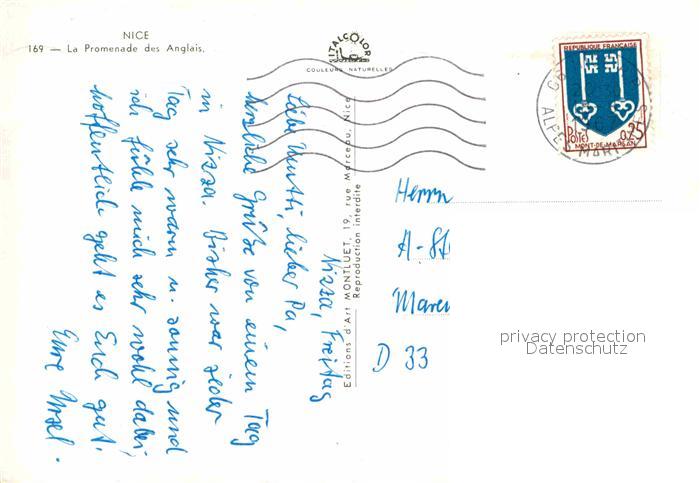 NICE
169 — La Promenade des Anglais.
ITALCOLOR
COULEURS NATURELLES
REPUBLIQUE FRANÇAISE
Postes 0,25
MONT-DE-MARSAN
ALPES MARIT
Editions d'Art MONTLUET, 19, rue Marceau, Nice
Reproduction interdite
Nizza, Freitag
Liebe Mutti, lieber Pa,
herzliche Grüße von einem Tag
in Nizza. Bisher war jeder
Tag sehr warm u. sonnig und
ich fühle mich sehr wohl dabei,
hoffentlich geht es Euch gut.
Eure Ursel.
Herrn
D 33
privacy protection
Datenschutz